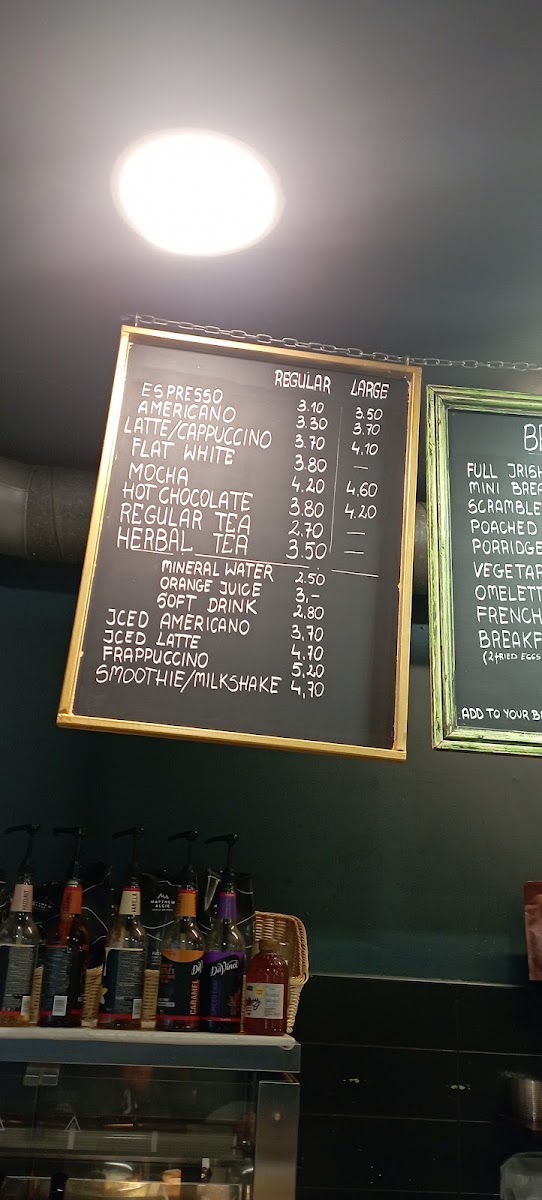 REGULAR LARGE
ESPRESSO 3.10 3.50
AMERICANO 3.30 3.70
LATTE/CAPPUCCINO 3.70 4.10
FLAT WHITE 3.80 —
MOCHA 4.20 4.60
HOT CHOCOLATE 3.80 4.20
REGULAR TEA 2.70 —
HERBAL TEA 3.50 —
MINERAL WATER 2.50
ORANGE JUICE 3,-
SOFT DRINK 2,80
ICED AMERICANO 3,70
ICED LATTE 4.70
FRAPPUCCINO 5,20
SMOOTHIE/MILKSHAKE 4,70
FULL IRISH
MINI BREA
SCRAMBLE
POACHED
PORRIDGE
VEGETAR
OMELETT
FRENCH
BREAKF
(2 FRIED EGGS
ADD TO YOUR B
MATTHEW
ALGIE
DaVinci
CARAMEL
DaVinci